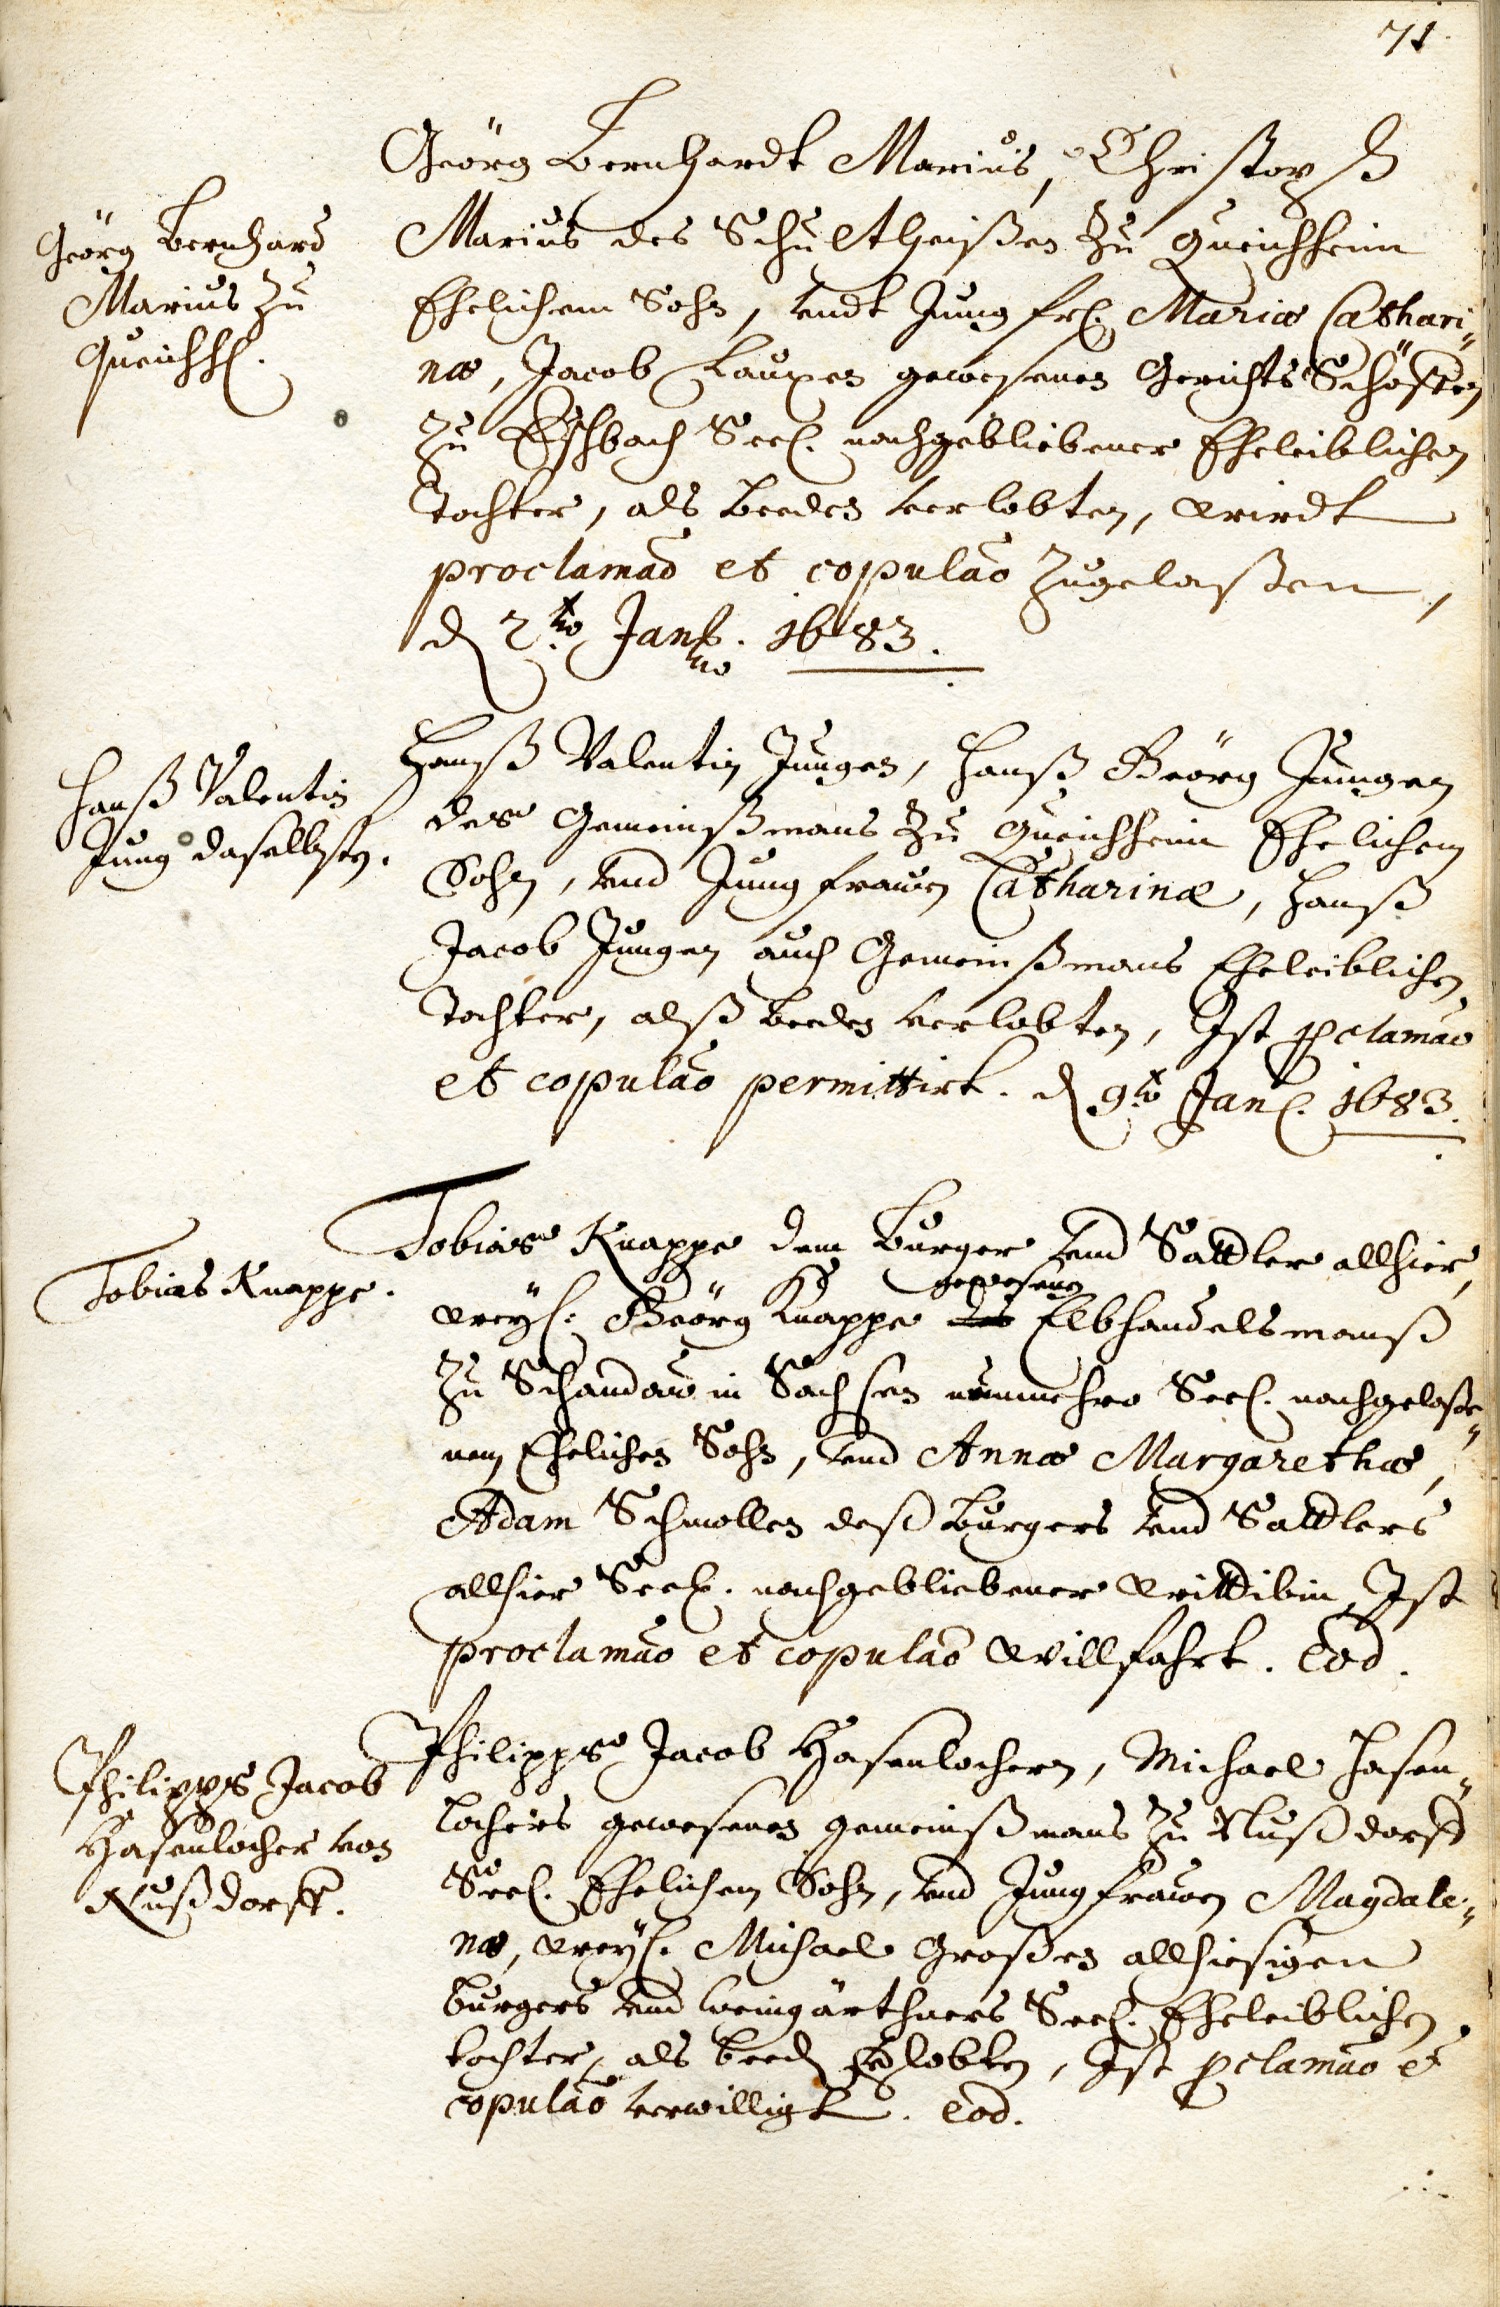 71.
Geörg Bernhard
Marius zu
Queichh.
Geörg Bernhardt Marius, Christoph
Marius des Schultheißen zu Queichheim
Ehelichem Sohn, vndt Jungfr. Mariæ Cathari-
næ, Jacob Lauxen gewesenen Gerichts Schöffen
zu Eschbach Seel. nachgebliebener Eheleiblichen
Tochter, als beeden verlobten, wirdt
proclamao et copulao zugelaßen,
d 2.to Jan. 1683.
Hanß Valentin
Jung daselbsten.
Hanß Valentin Jungen, Hanß Geörg Jungen
des Gemeinßmans zu Queichheim Ehelichem
Sohn, vnd Jungfrawen Catharinæ, Hanß
Jacob Jungen auch Gemeinßmans Eheleiblichen
Tochter, alß beeden verlobten, Ist pclamao
et copulao permittirt. d 9.to Jan. 1683.
Tobias Knappe.
Tobias Knappe dem Burger vnd Sattler allhier,
weyl. Geörg Knappe des gewesenen Elbhandelsmanß
zu Schandaw in Sachsen nunmehro Seel. nachgelaße-
nem Ehelichen Sohn, vnd Annæ Margarethæ,
Adam Schmollen deß Burgers vnd Sattlers
allhier Seel. nachgebliebener Wittibin, Ist
proclamao et copulao willfahrt. Eod.
Philipps Jacob
Hasenlocher von
Nußdorff.
Philipps Jacob Hasenlochern, Michael Hasen-
lochers gewesenen gemeinßmans zu Nußdorff
Seel. Ehelichem Sohn, vnd Jungfrawen Magdale-
næ, weyl. Michael Großen allhiesigen
burgers vnd Weingärthners Seel. Eheleiblichen
tochter, als beed verlobten, Ist pclamao et
copulao verwilligt. Eod.